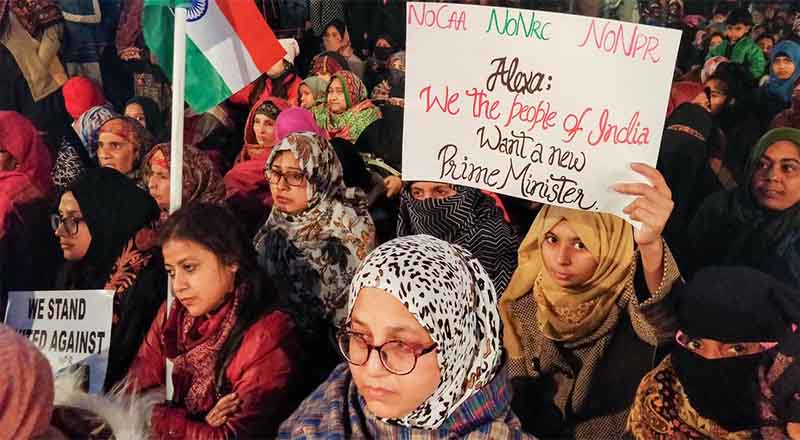 NoCAA NoNRC NoNPR
Alexa;
We the people of India
Want a new
Prime Minister.
WE STAND
UNITED AGAINST